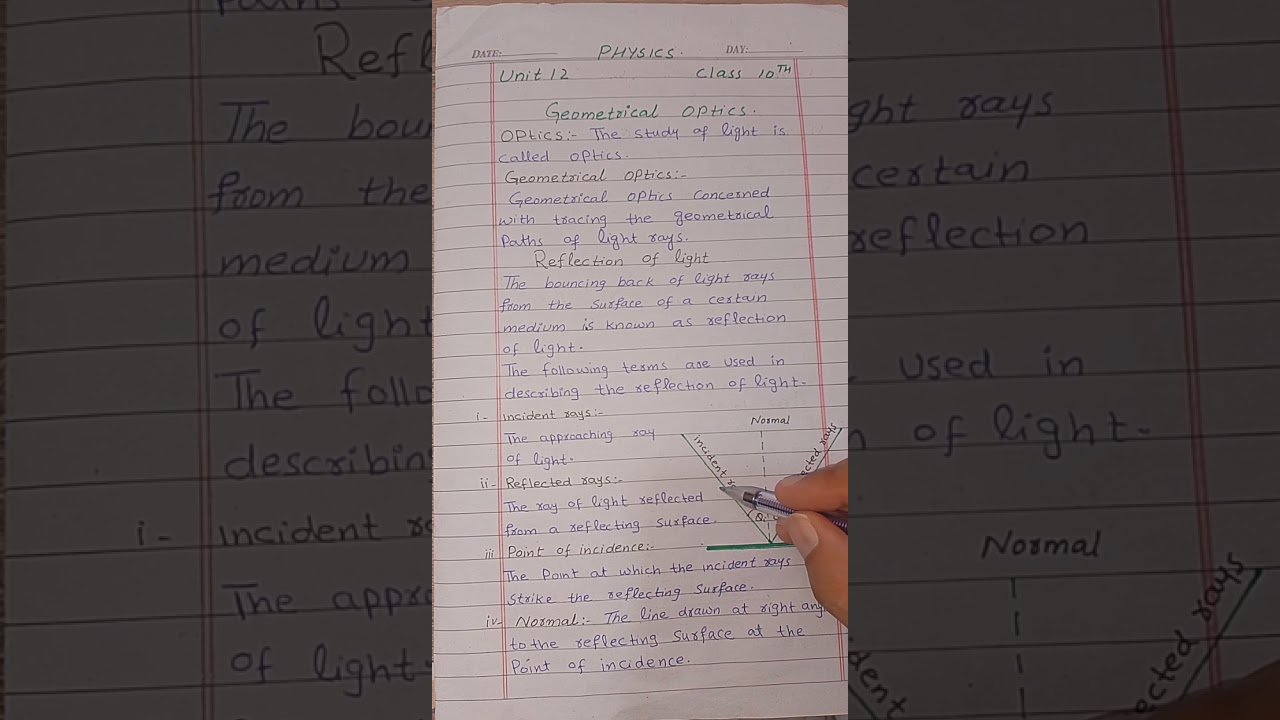 DATE:
PHYSICS.
DAY:
Unit 12
Class 10TH
Geometrical Optics.
Optics:- The study of light is
called optics.
Geometrical optics:-
Geometrical optics concerned
with tracing the geometrical
Paths of light rays.
Reflection of light
The bouncing back of light rays
from the surface of a certain
medium is known as reflection
of light.
The following terms are used in
describing the reflection of light.
i- Incident rays:-
The approaching ray
of light.
ii- Reflected rays:-
The ray of light reflected
from a reflecting surface.
iii Point of incidence:-
The Point at which the incident rays
Strike the reflecting surface.
iv- Normal:- The line drawn at right ang
to the reflecting surface at the
Point of incidence.
Normal
incident
ected rays